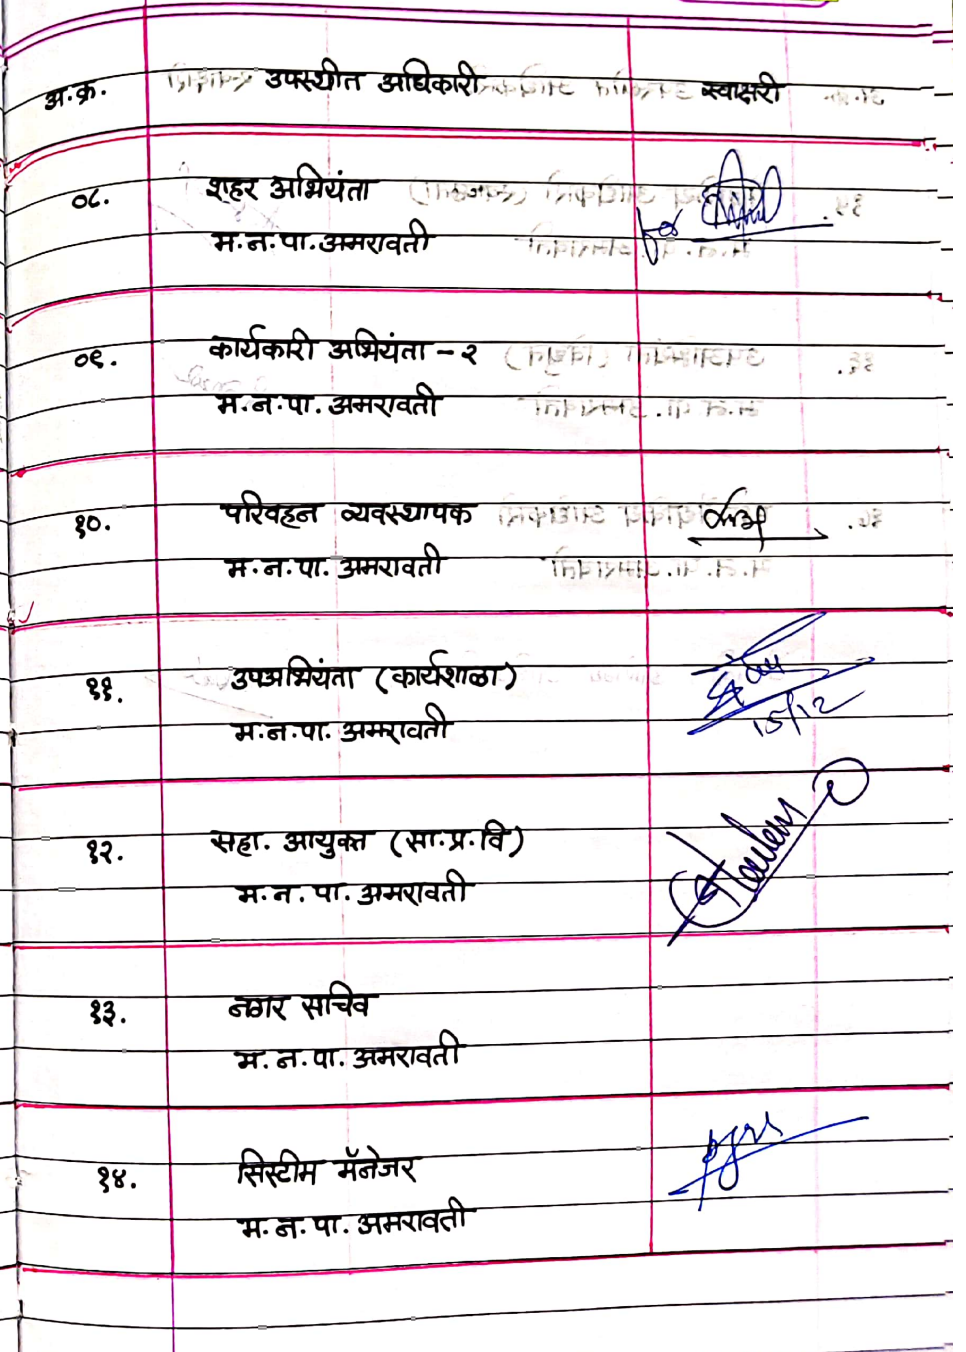 अ.क्र. उपस्थीत अधिकारी स्वाक्षरी
०८. शहर अभियंता
म.न.पा.अमरावती
for
०९. कार्यकारी अभियंता - २
म.न.पा. अमरावती
१०. परिवहन व्यवस्थापक
म.न.पा. अमरावती
११. उपअभियंता (कार्यशाळा)
15/12
म.न.पा. अमरावती
१२. सहा. आयुक्त (सा.प्र.वि)
म.न. पा. अमरावती
१३. नगर सचिव
म. न. पा. अमरावती
१४. सिस्टीम मॅनेजर
म. न. पा. अमरावती